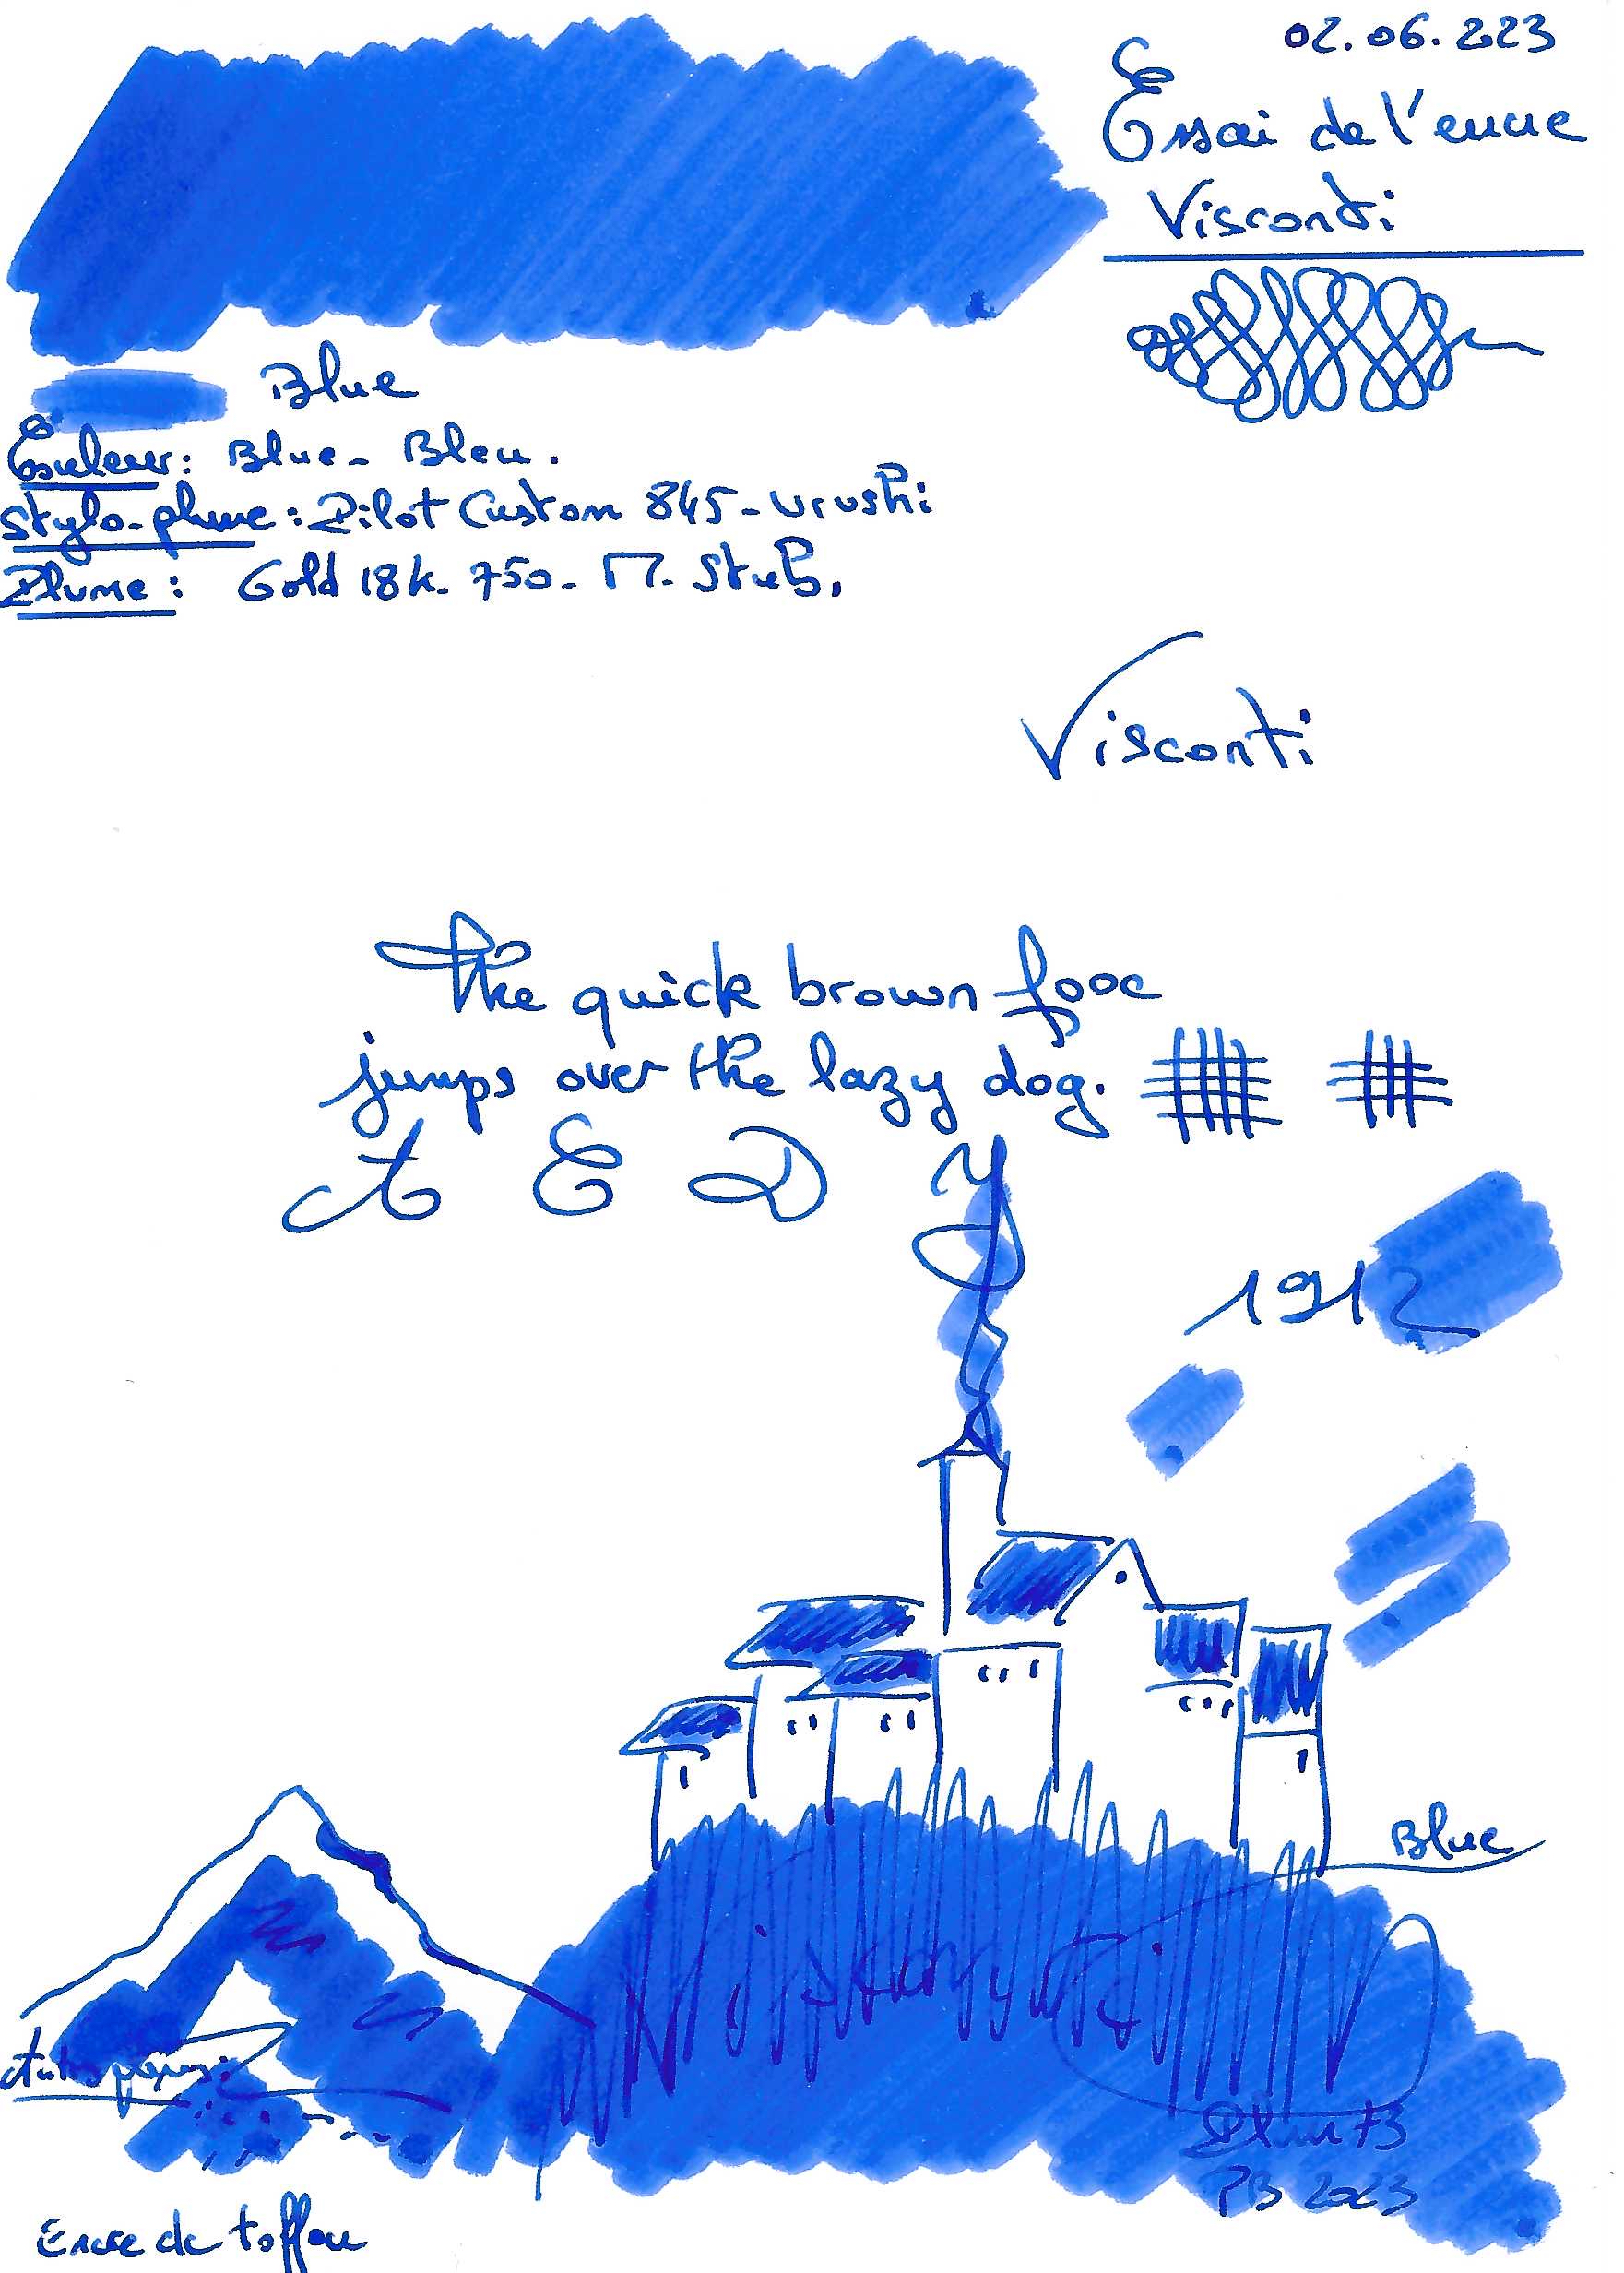 02.06.223
Essai de l'encre
Visconti
Blue
Couleur: Blue - Bleu.
Stylo-plume: Pilot Custom 845 - Urushi
Plume: Gold 18k - 750 - M. Stub.
Visconti
The quick brown fox
jumps over the lazy dog.
A E D Y
1912
Blue
Visconti
PB 2023
Encre de